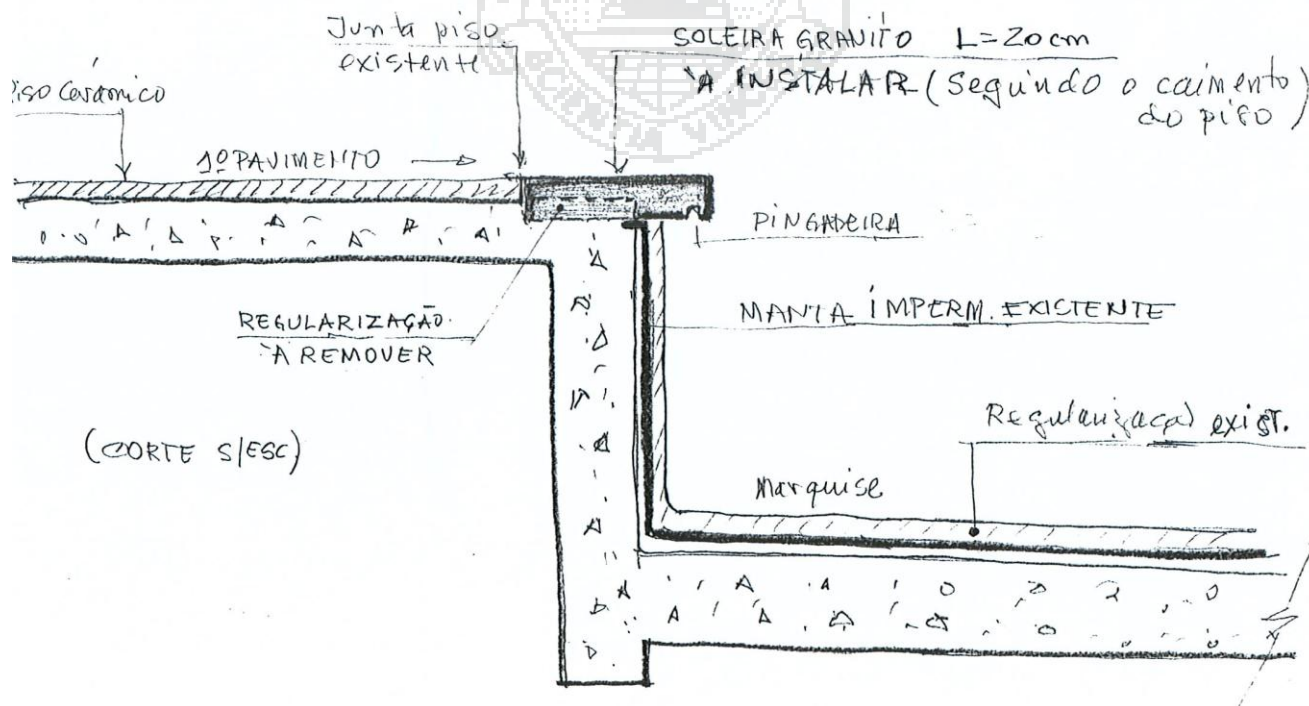 Junta piso
existente
SOLEIRA GRANITO L=20cm
À INSTALAR (Seguindo o caimento
do piso)
iso Cerâmico
1º PAVIMENTO
PINGADEIRA
REGULARIZAÇÃO
À REMOVER
MANTA IMPERM. EXISTENTE
(CORTE S/ESC)
Regularização exist.
Marquise